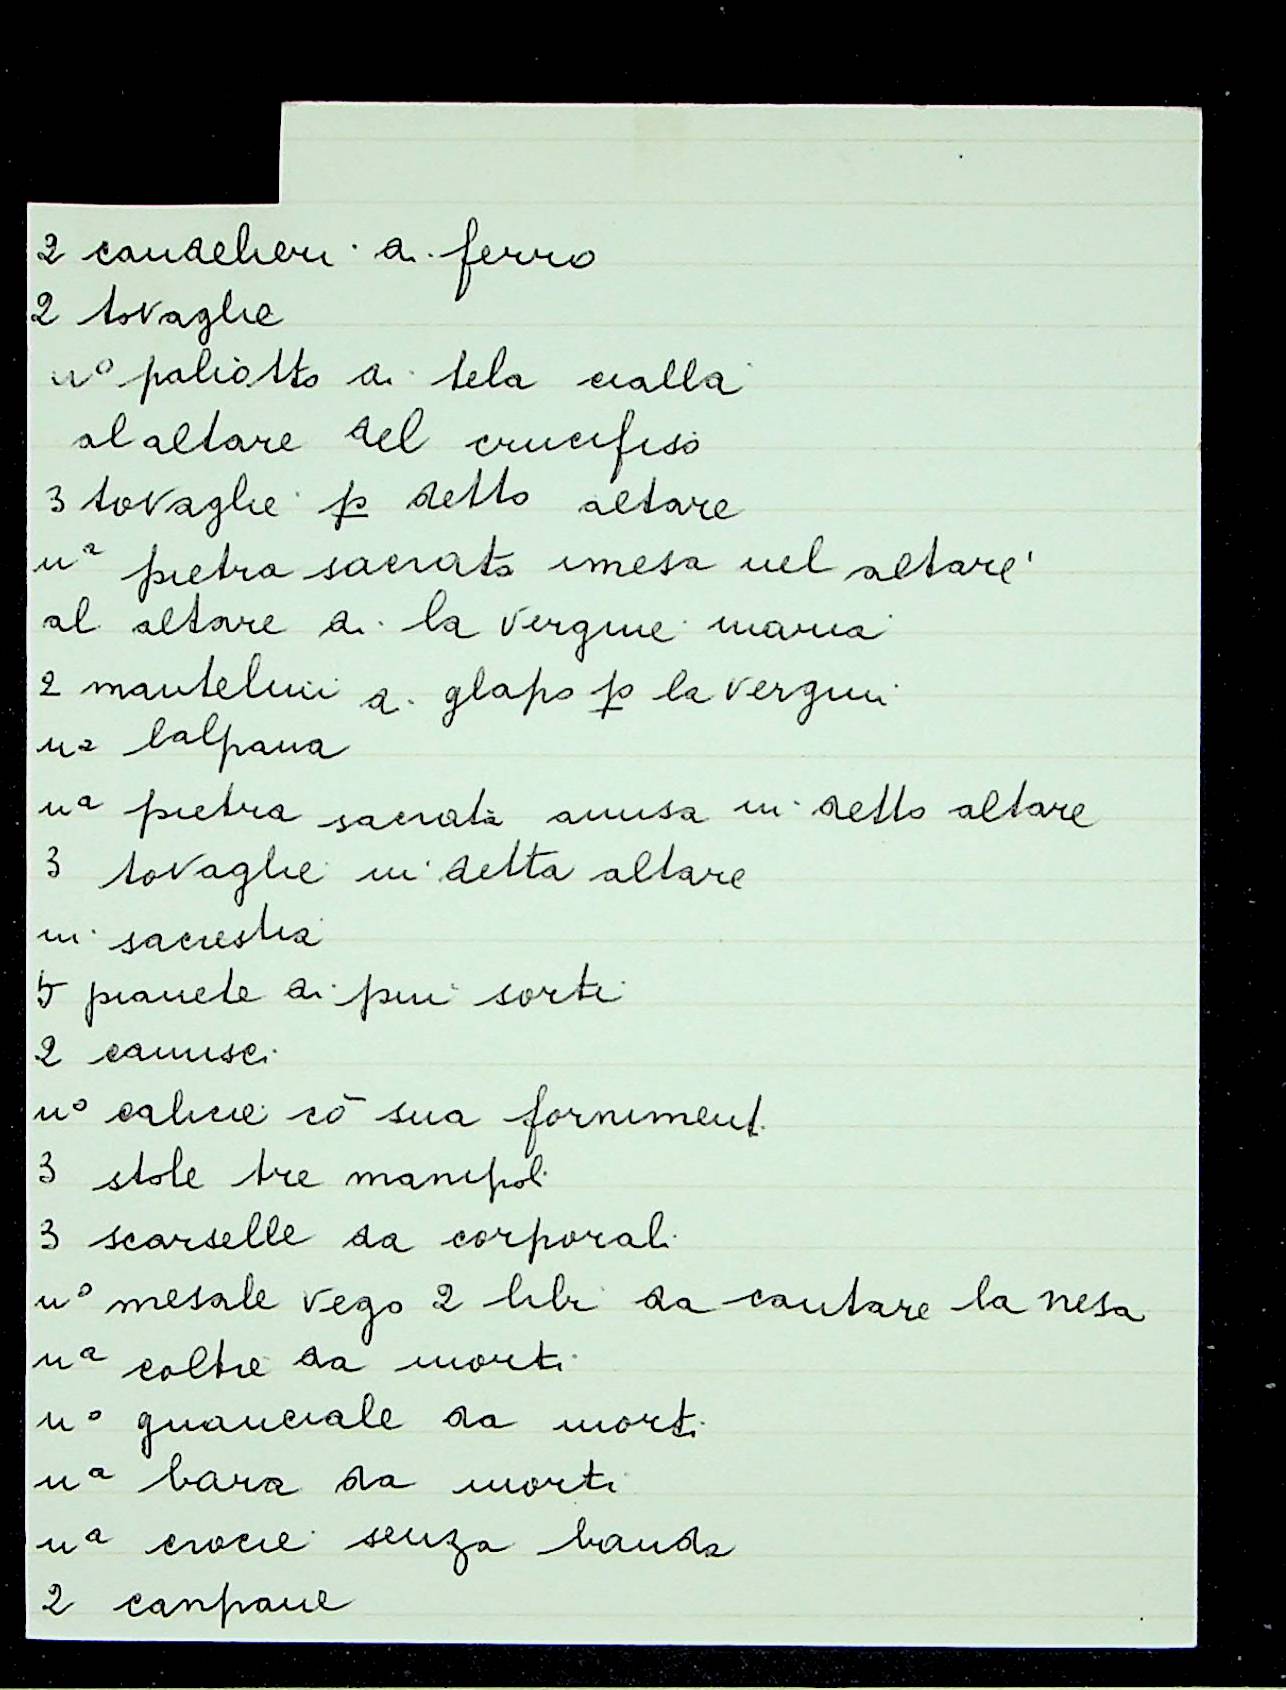 2 candelieri di ferro
2 tovaglie
nº paliotto di tela cialla
al altare del crucifiso
3 tovaglie p detto altare
nª pietra sacrata imesa nel altare
al altare di la vergine maria
2 mantelini di p la vergini
na
nª pietra sacrata in detto altare
3 tovaglie in detta altare
in sacrestia
5 pianete di piui sorti
2 camisci
nº calicie cō sua forniment
3 stole tre manipoli
3 scarselle da corporali
nº mesale vego 2 libi da cantare la nesa
nª coltre da morti
nº guanciale da morti
nª bara da morti
nª crocie senza banda
2 canpane